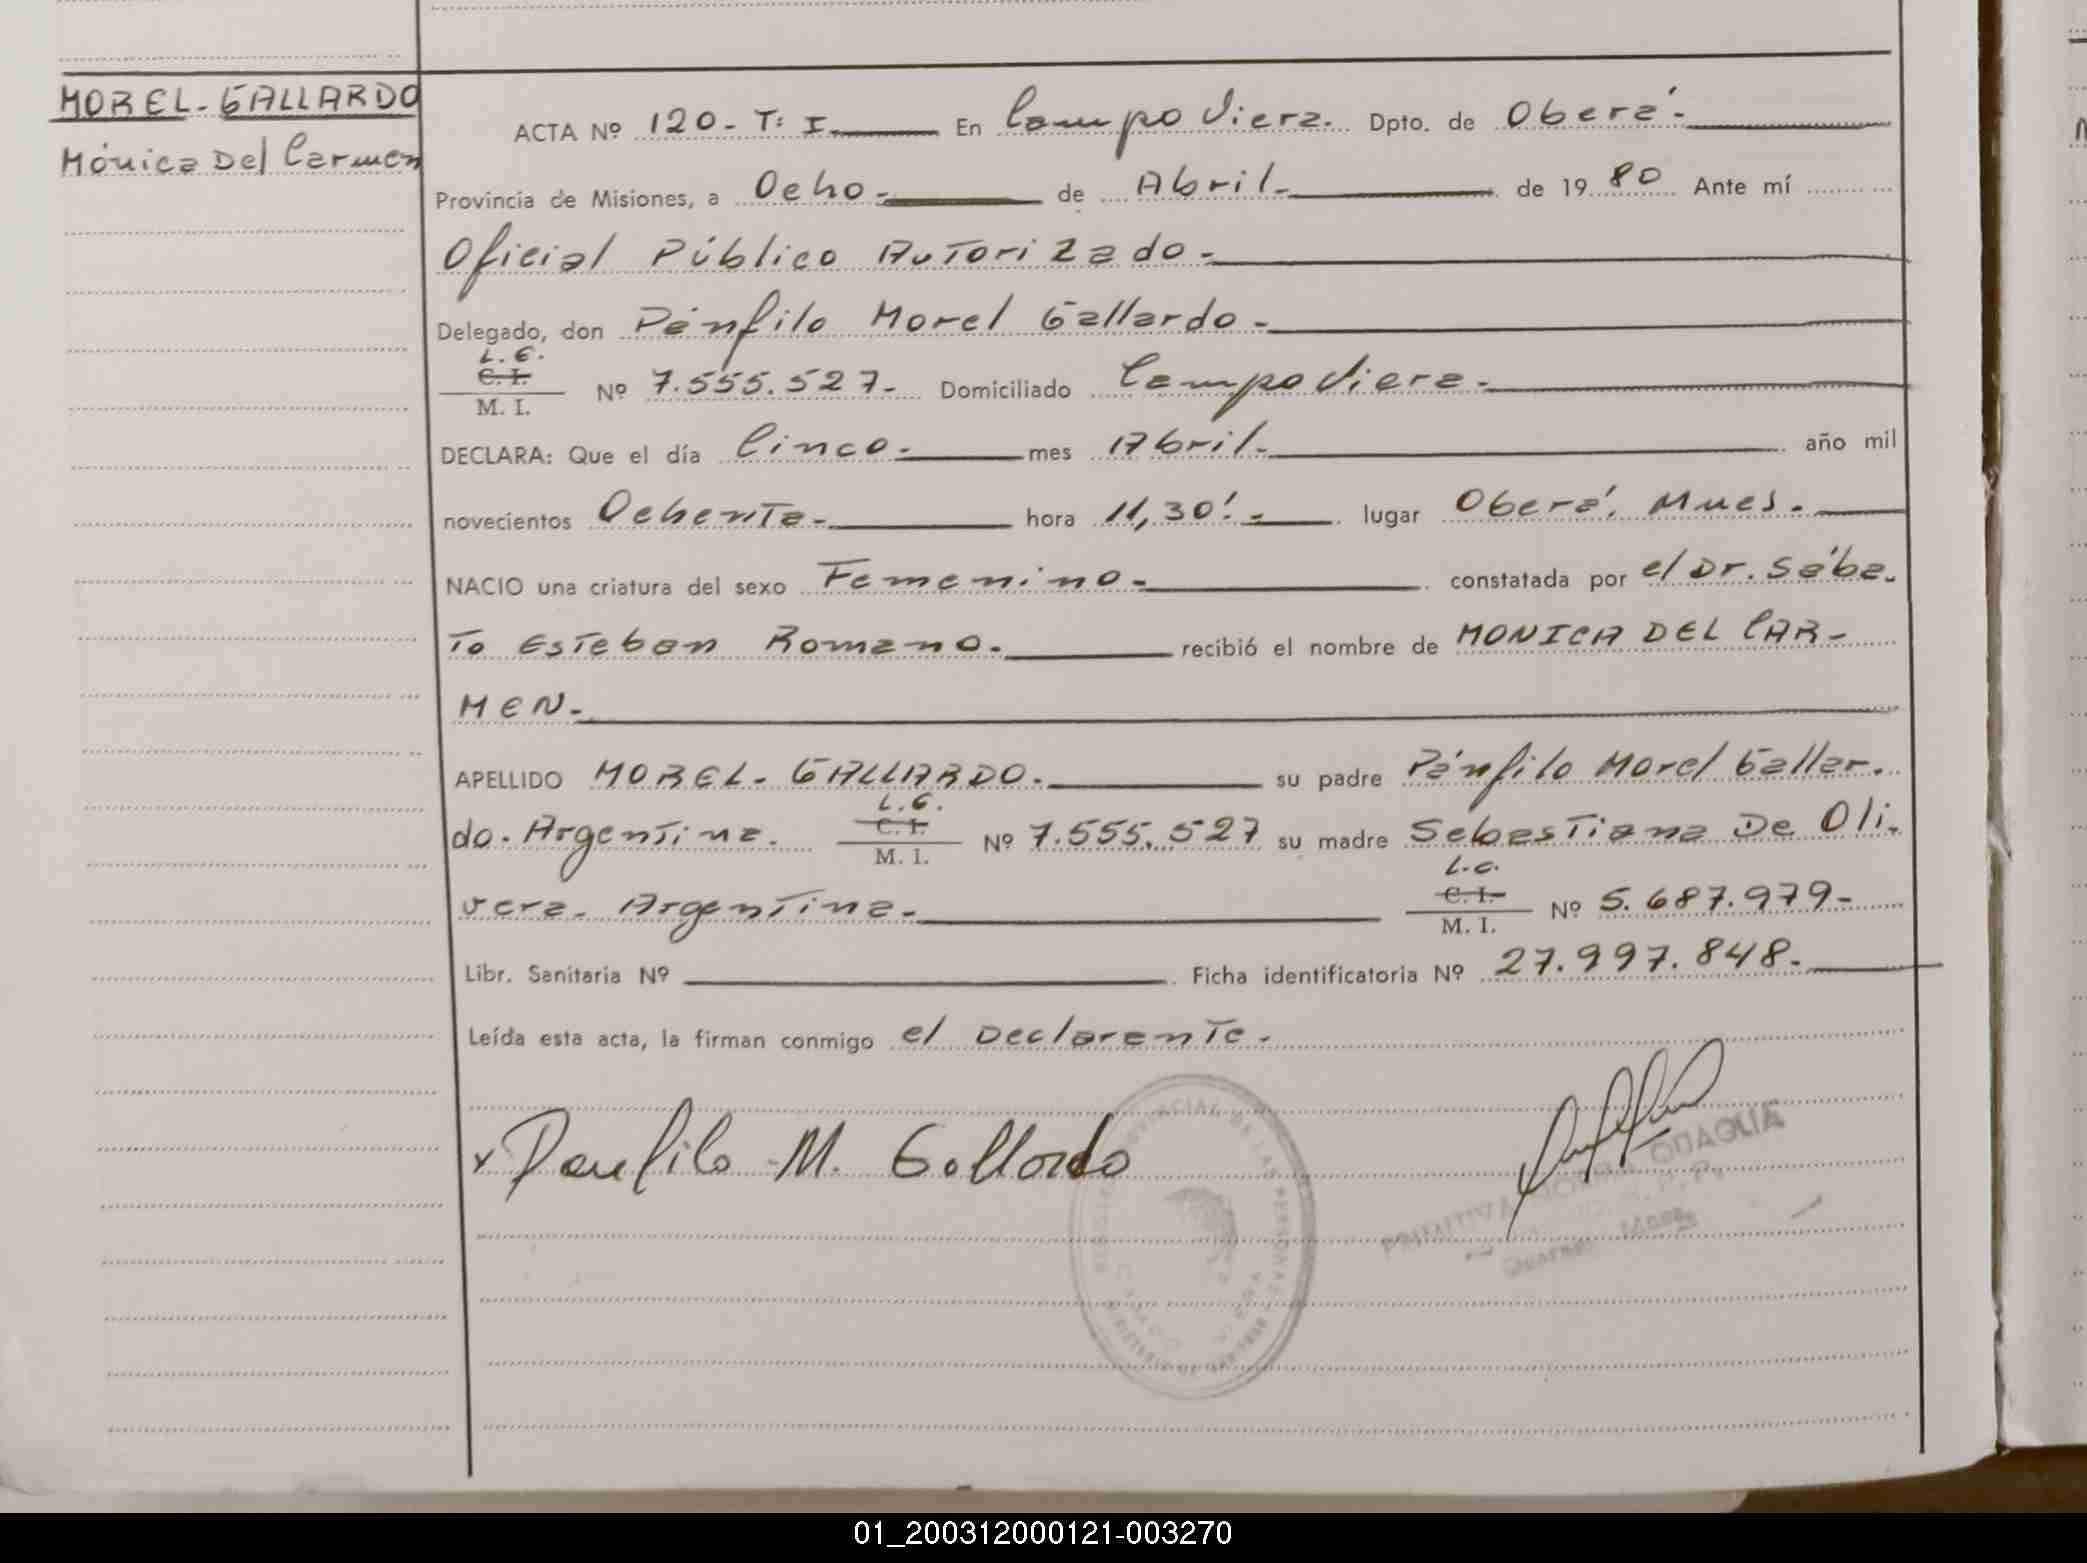 MOREL-GALLARDO
Mónica Del Carmen
ACTA Nº 120- T: I. En Campo Viera. Dpto. de Oberá.-
Provincia de Misiones, a Ocho.- de Abril.- de 1980 Ante mí
Oficial Público Autorizado.-
Delegado, don Pánfilo Morel Gallardo.-
L.E.
C. I.
M. I.
Nº 7.555.527.- Domiciliado Campo Viera.-
DECLARA: Que el día Cinco.- mes Abril.- año mil
novecientos Ochenta.- hora 11,30'.- lugar Oberá, Mnes.-
NACIO una criatura del sexo Femenino.- constatada por el Dr. Sába-
to Esteban Romano.- recibió el nombre de MONICA DEL CAR-
MEN.-
APELLIDO MOREL-GALLARDO.- su padre Pánfilo Morel Gallar-
L.E.
do. Argentina. C. I. Nº 7.555.527 su madre Sebastiana De Oli-
M. I.
L.C.
vera. Argentina.- C. I. Nº 5.687.979-
M. I.
Libr. Sanitaria Nº Ficha identificatoria Nº 27.997.848.-
Leída esta acta, la firman conmigo el Declarante.-
x Panfilo M. Gallardo
PROVINCIAL DE LAS PERSONAS
PRIMITIVA QUAGLIA
01_200312000121-003270